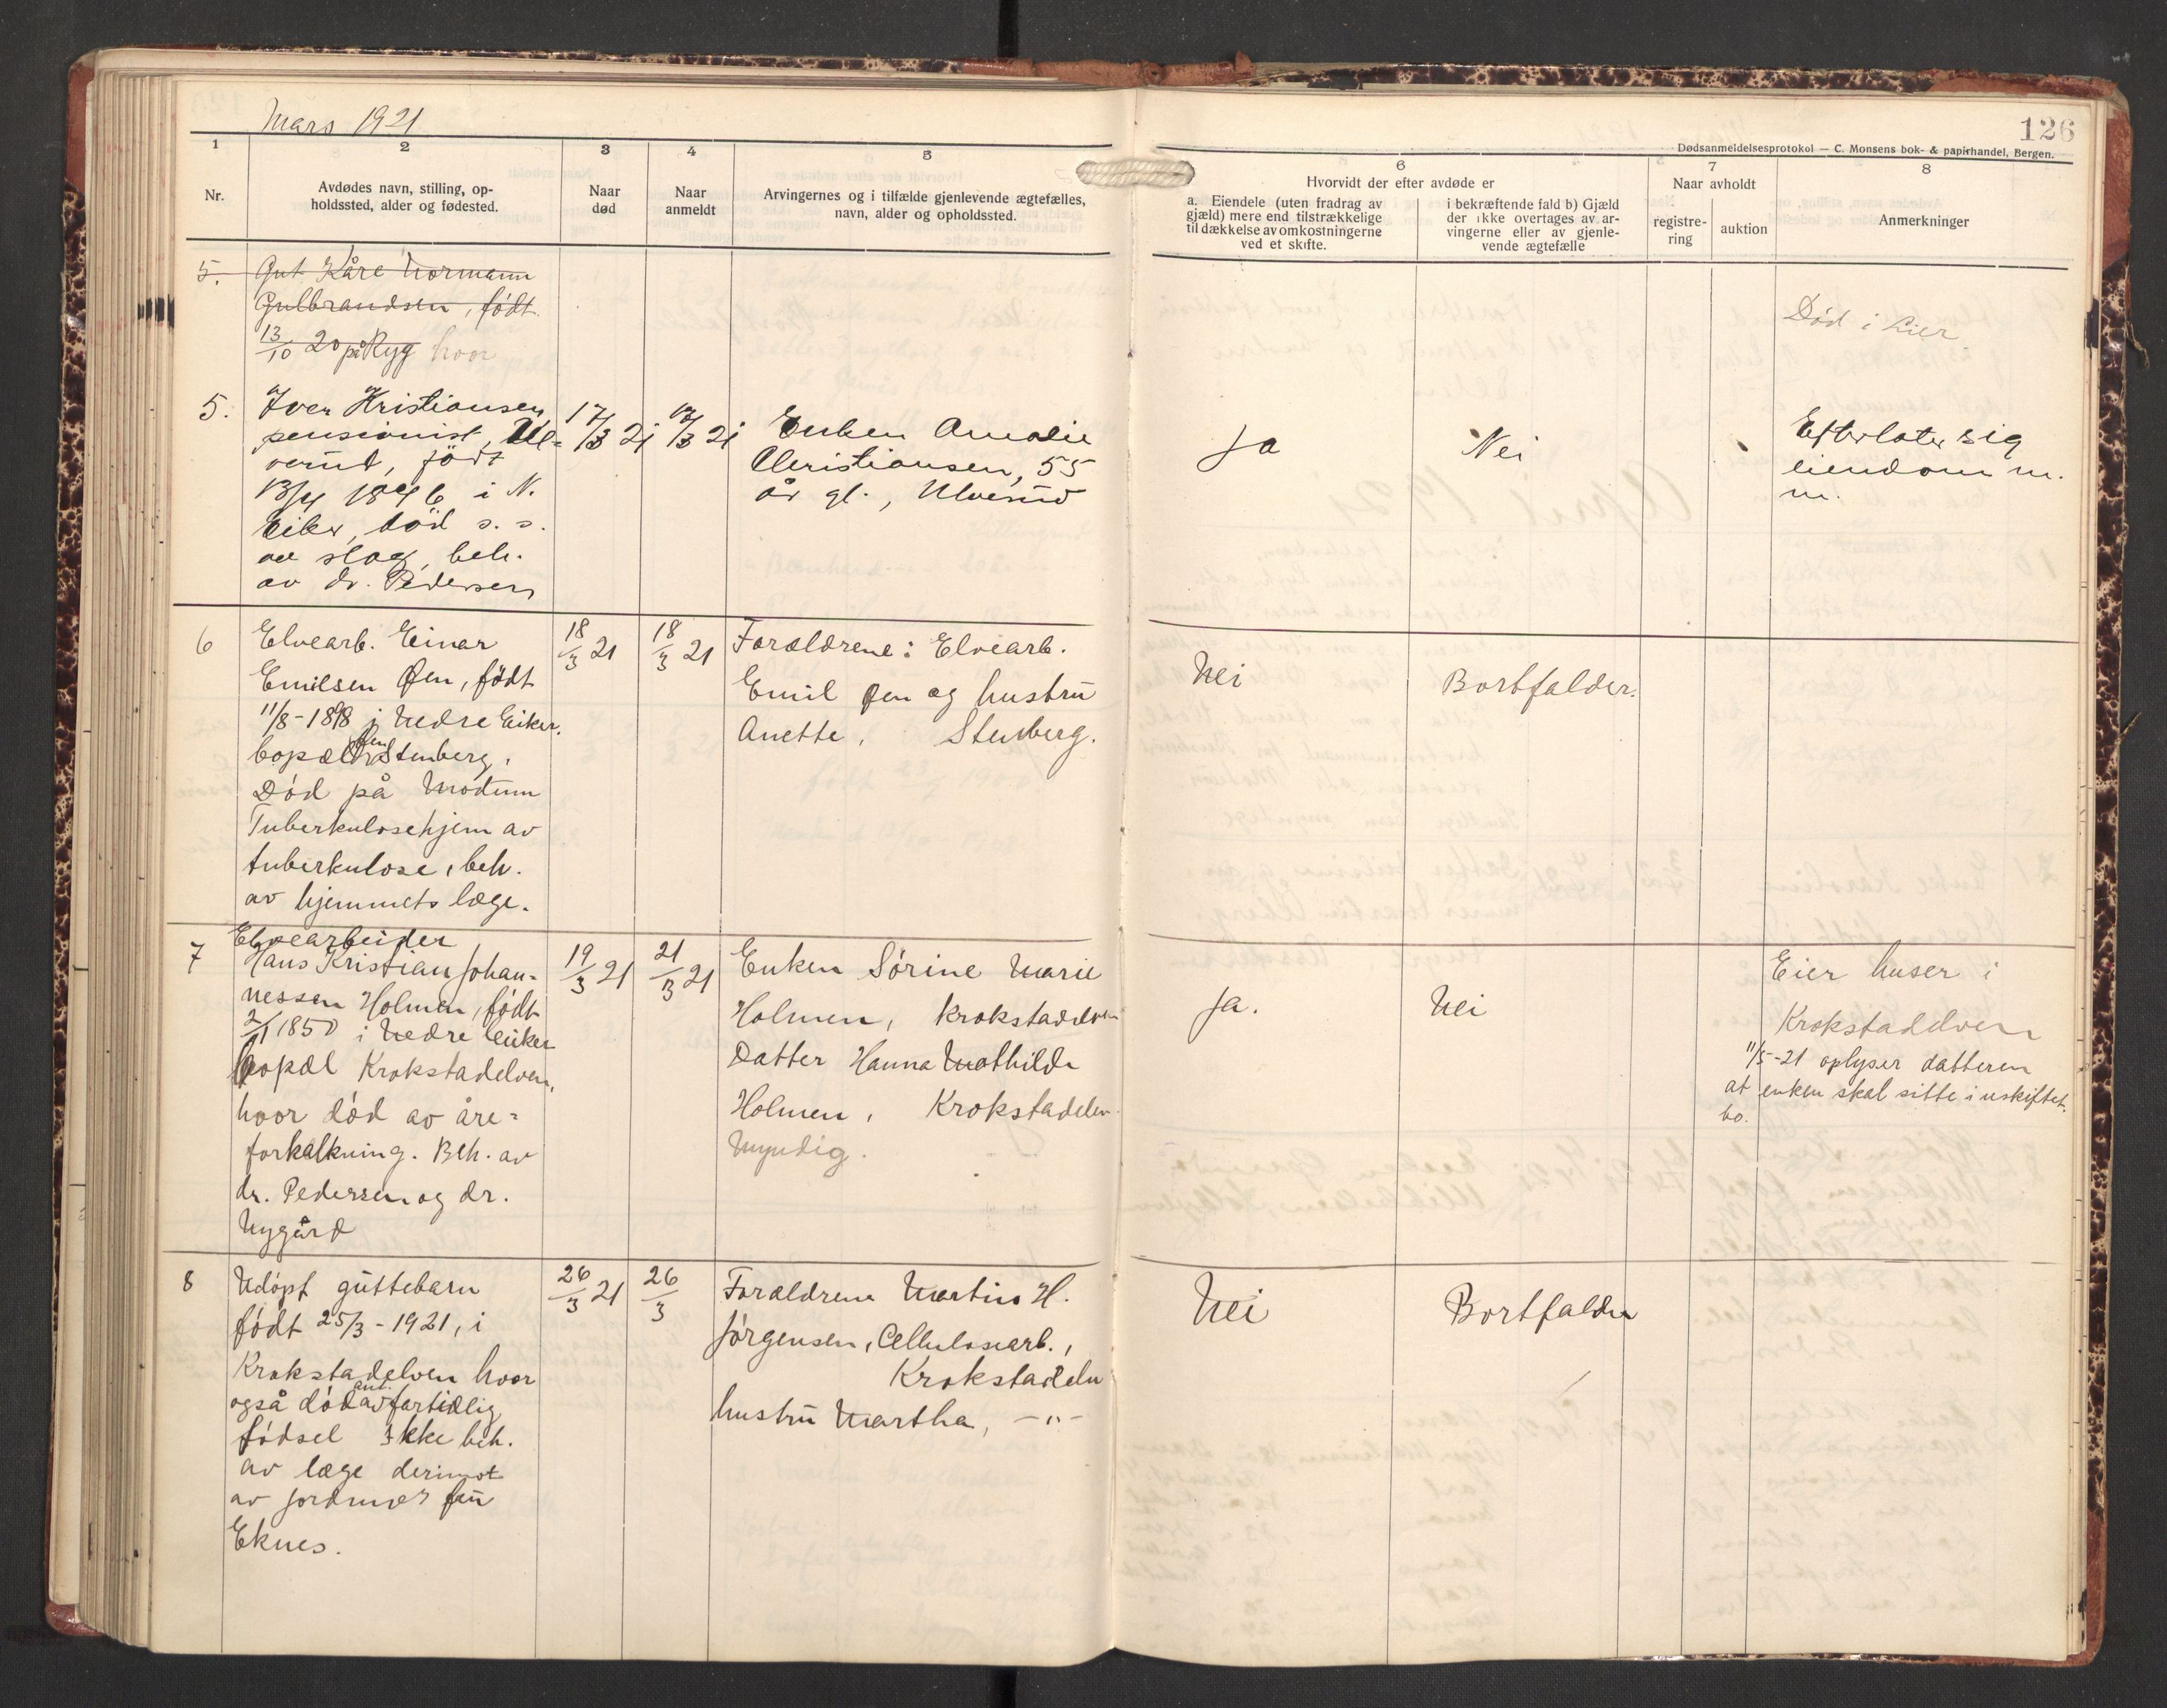 Mars 1921
126
Dødsanmeldelsesprotokol — C. Monsens bok- & papirhandel, Bergen.
1
2
3
4
5
6
7
8
Nr.
Avdødes navn, stilling, op-
holdssted, alder og fødested.
Naar
død
Naar
anmeldt
Arvingernes og i tilfælde gjenlevende ægtefælles,
navn, alder og opholdssted.
Hvorvidt der efter avdøde er
a. Eiendele (uten fradrag av
gjæld) mere end tilstrækkelige
til dækkelse av omkostningerne
ved et skifte.
i bekræftende fald b) Gjæld
der ikke overtages av ar-
vingerne eller av gjenle-
vende ægtefælle
Naar avholdt
registre-
ring
auktion
Anmerkninger
5.
Gut Kåre Normann
Gulbrandsen, født
13/10 20 på Ryg hvor
Død i Lier.
5.
Iver Kristiansen
pensionist, Ul-
verud, født
13/4 1846 i N.
Eiker, død s. s.
av slag, beh.
av dr. Pedersen
17/3 21
17/3 21
Enken Amalie
Christiansen, 55
år gl., Ulverud
Ja
Nei
Efterlater sig
eiendom m.
m.
6
Elvearb. Einar
Emilsen Øen, født
11/8-1898 i Nedre Eiker.
bopæl Øen Stenberg,
Død på Modum
Tuberkulosehjem av
tuberkulose, beh.
av hjemmets læge.
18/3 21
18/3 21
Forældrene: Elvearb.
Emil Øen og hustru
Anette, Stenberg.
Nei
Bortfalder.
7
Elvearbeider
Hans Kristian Johan-
nessen Holmen, født
2/11 1850 i Nedre Eiker
bopæl Krokstadelven,
hvor død av åre-
forkalkning. Beh. av
dr. Pedersen og dr.
Nygård
19/3 21
21/3 21
Enken Sørine Marie
Holmen, Krokstadelven
Datter Hanna Mathilde
Holmen, Krokstadelv.
Myndig.
Ja.
Nei
Eier huser i
Krokstadelven
11/5-21 oplyser datteren
at enken skal sitte i uskiftet
bo.
8
Udøpt guttebarn
født 25/3-1921, i
Krokstadelven hvor
også død av ant. fortidlig
fødsel Ikke beh.
av læge derimot
av jordmor fru
Eknes.
26/3 21
26/3
Forældrene Martin H.
Jørgensen, Cellulosearb.,
Krokstadelv
hustru Martha, -"-
Nei
Bortfalder